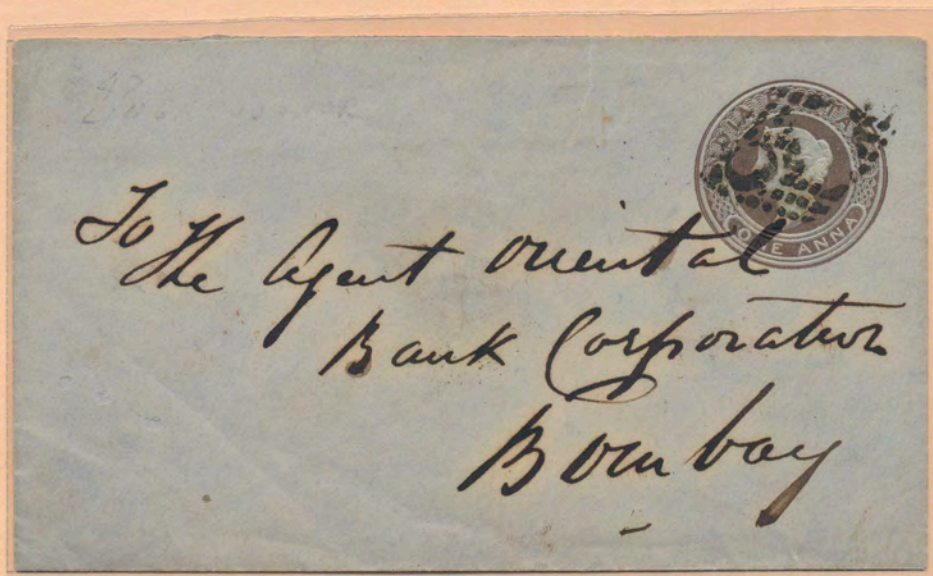 INDIA POSTAGE
ONE ANNA
To
The Agent Oriental
Bank Corporation
Bombay